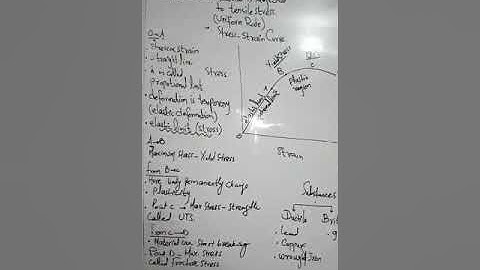 to tensile stress
(Uniform Rode)
Stress-Strain Curve
O-A
Stress ∝ strain
- straight line
A is called
proportional limit
deformation is temporary
(elastic deformation)
elastic limit (stress)
A→B
Maximum stress - Yield stress
from B→C
Here body permanently change
Plasticity
Point C → Max Stress - strength
Called UTS
from C→D
Material can start breaking
Point D - Max stress
called fracture stress
Stress
Yield stress
B
UTS
C
Plastic
region
A
O
Strain
Substances
Ductile
Lead
Copper
wrought Iron
Brit
g